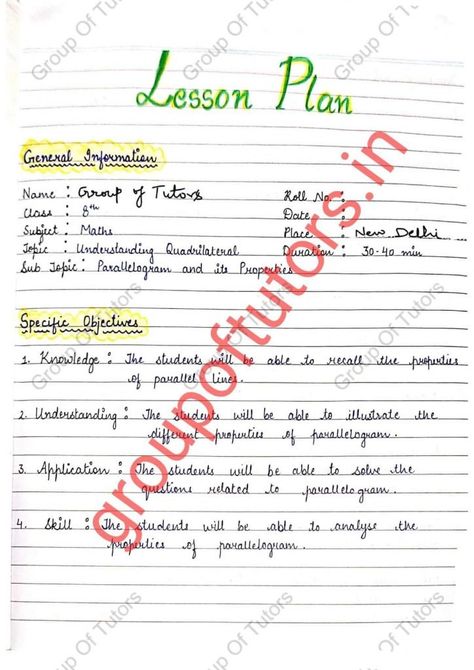 Lesson Plan
General Information
Name : Group of Tutors Roll No. :
Class : 8th Date :
Subject : Maths Place : New Delhi
Topic : Understanding Quadrilateral Duration : 30-40 min
Sub Topic : Parallelogram and its Properties
Specific Objectives
1. Knowledge : The students will be able to recall the properties
of parallel lines.
2. Understanding : The students will be able to illustrate the
different properties of parallelogram.
3. Application : The students will be able to solve the
questions related to parallelogram.
4. Skill : The students will be able to analyse the
properties of parallelogram.
groupoftutors.in
Group Of Tutors
Group Of Tutors
Group Of Tutors
Group Of Tutors
Group Of Tutors
Group Of Tutors
Group Of Tutors
Group Of Tutors
Group Of Tutors